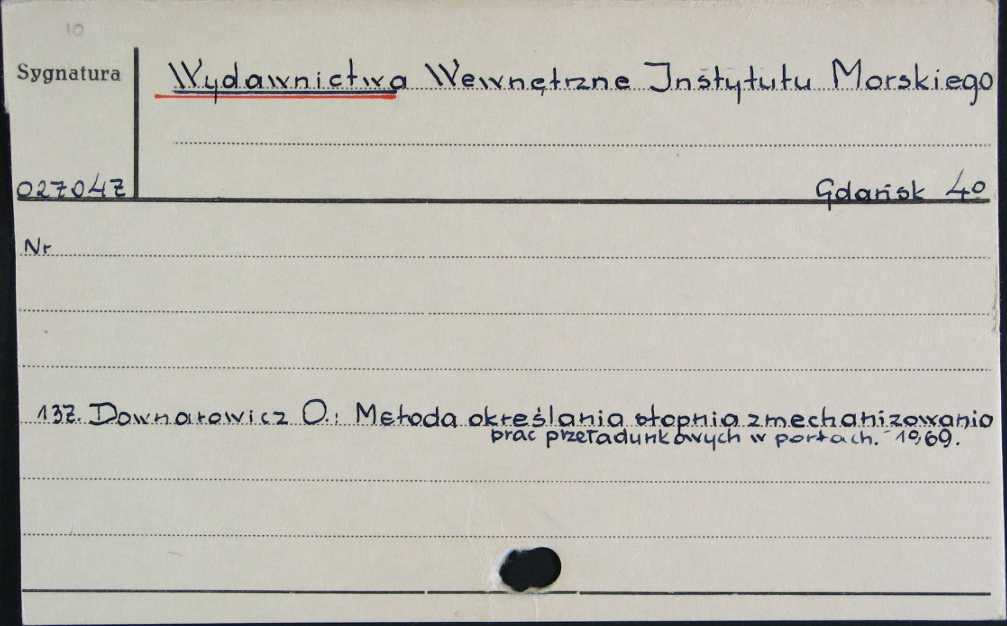 10
Sygnatura
Wydawnictwa Wewnętrzne Instytutu Morskiego
027047
Gdańsk 4º
Nr
137. Downarowicz O.: Metoda określania stopnia zmechanizowania
prac przeładunkowych w portach. 1969.